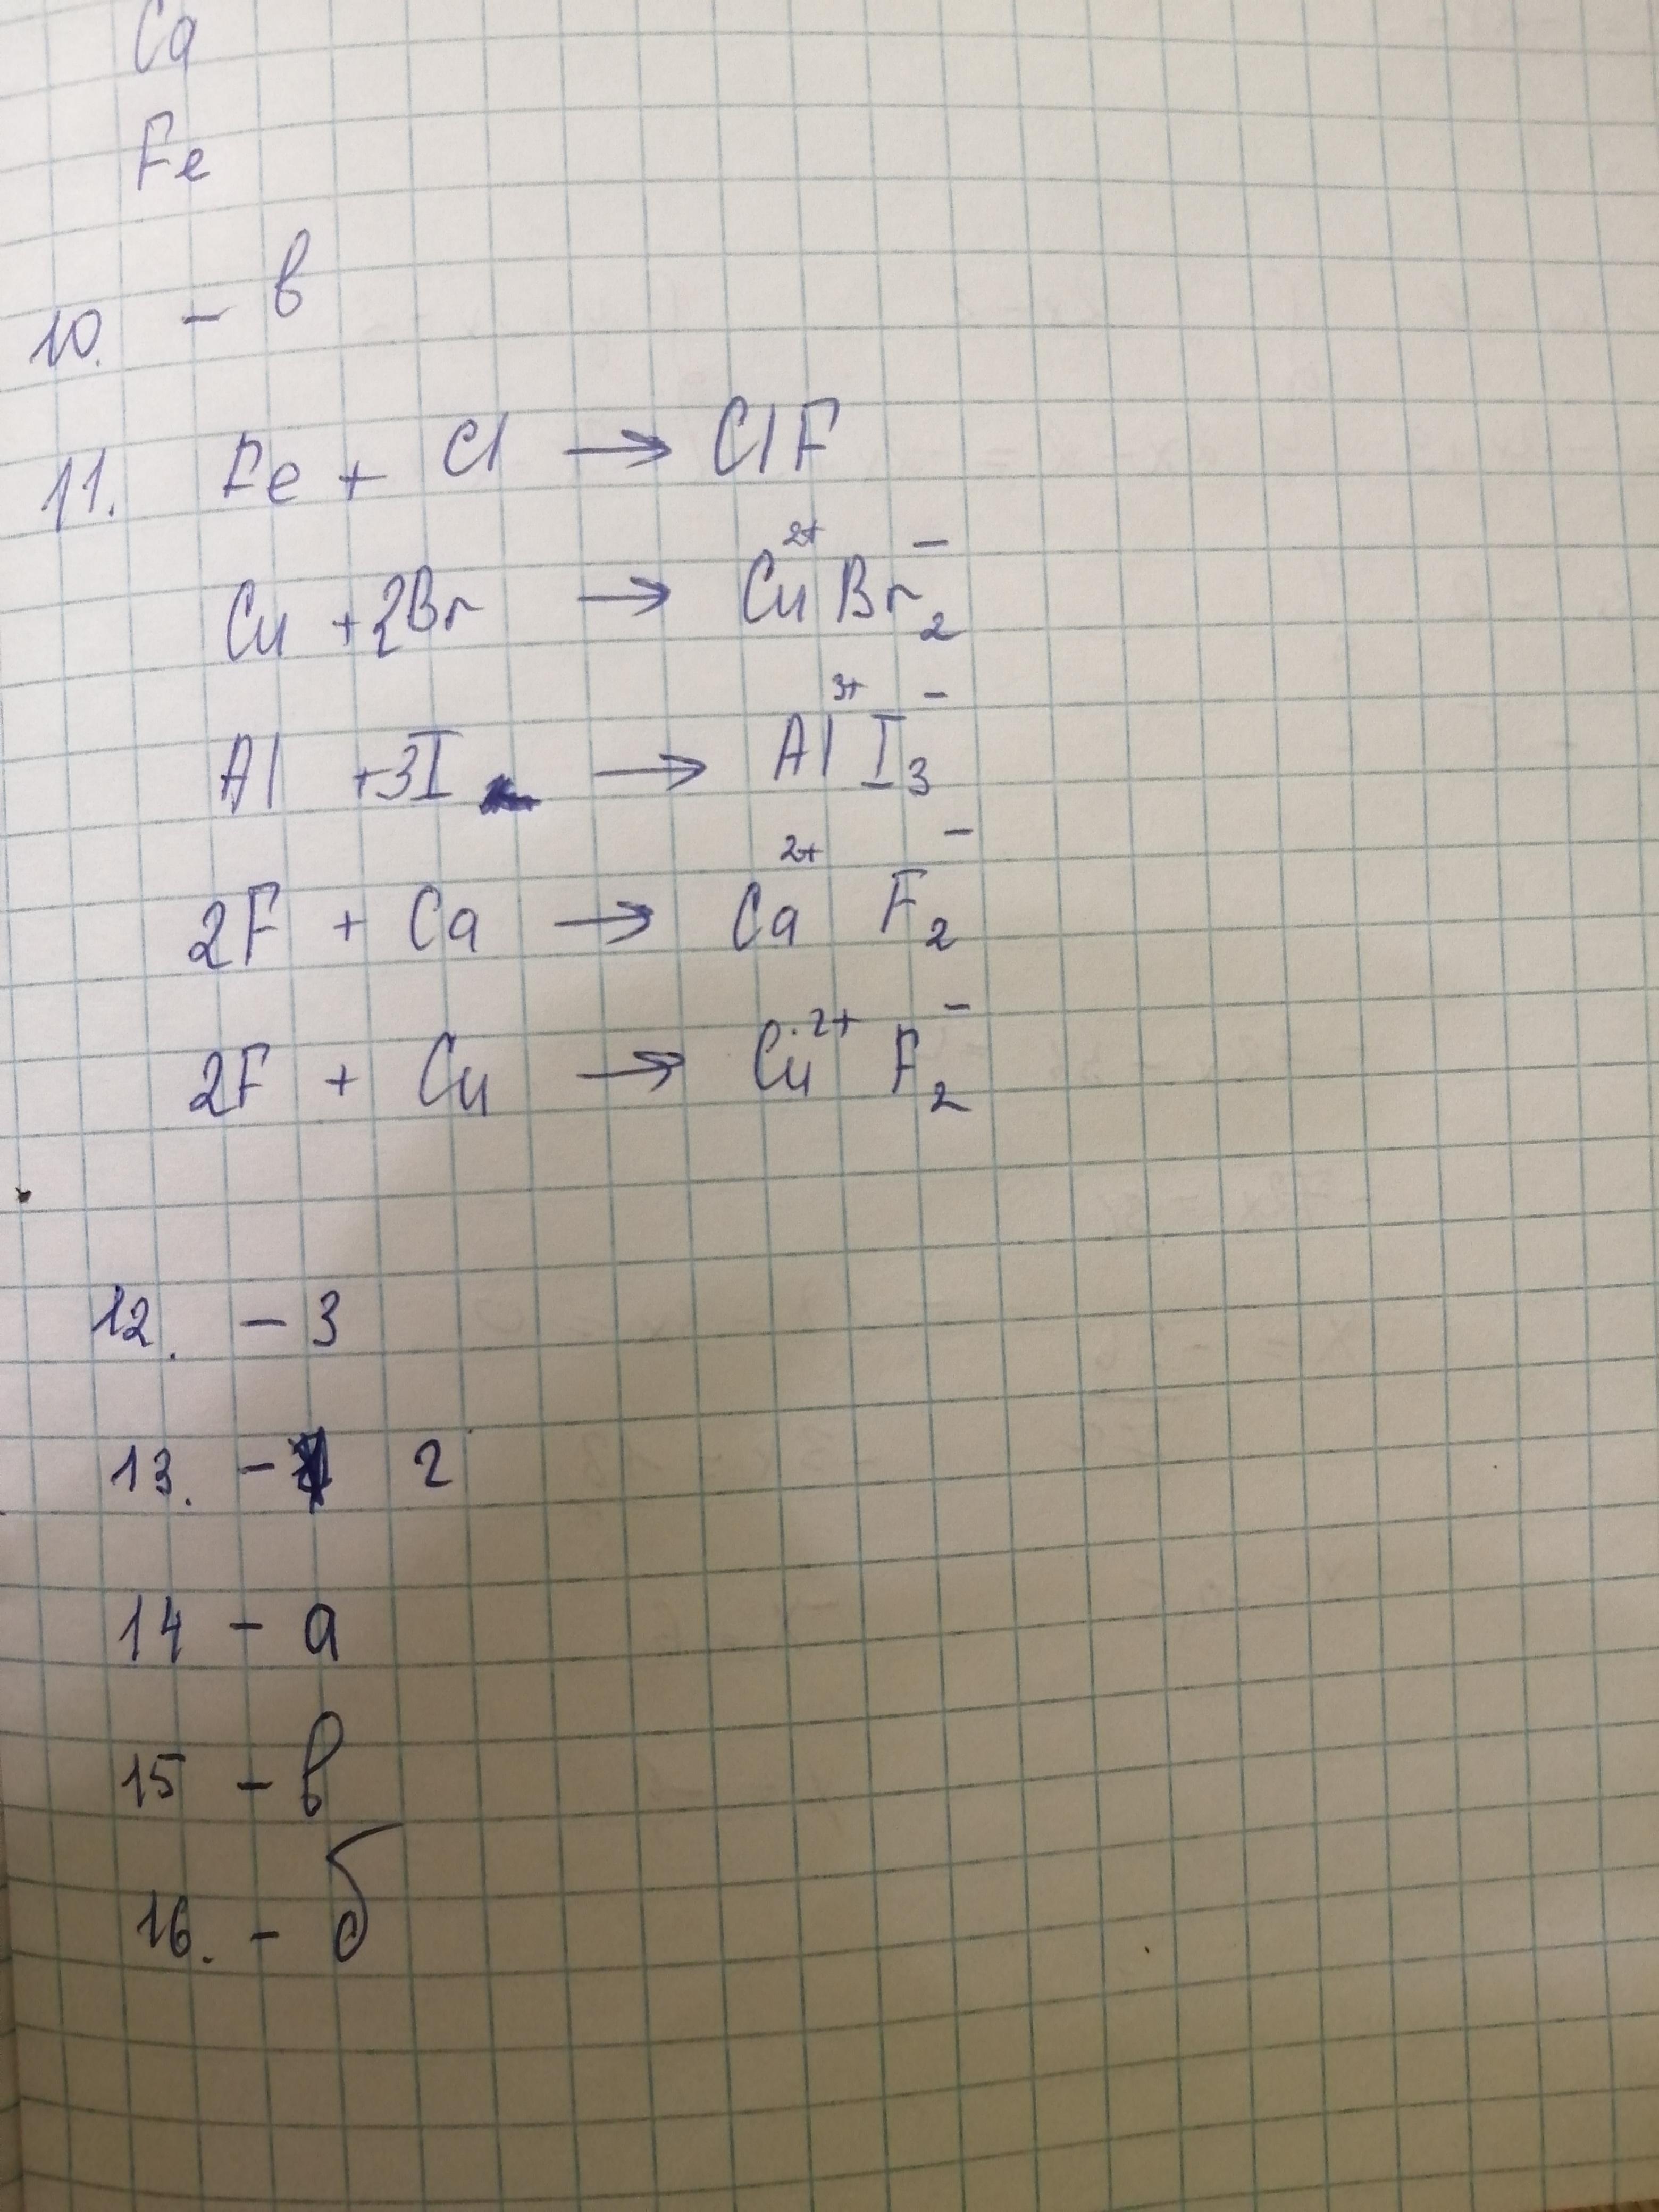 Ca
Fe
10. - в
11. Fe + Cl → ClF
Cu + 2Br → Cu²⁺Br₂⁻
Al + 3I → Al³⁺I₃⁻
2F + Ca → Ca²⁺ F₂⁻
2F + Cu → Cu²⁺ F₂⁻
12. - 3
13. - 2
14 - а
15 - в
16. - б